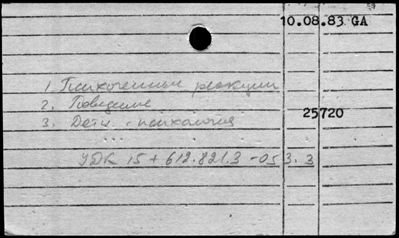 10.08.83 GA
1. Психогенные реакции
2. Поведение
3. Дети - психология
25720
УДК 15 + 612.821.3 - 053.3